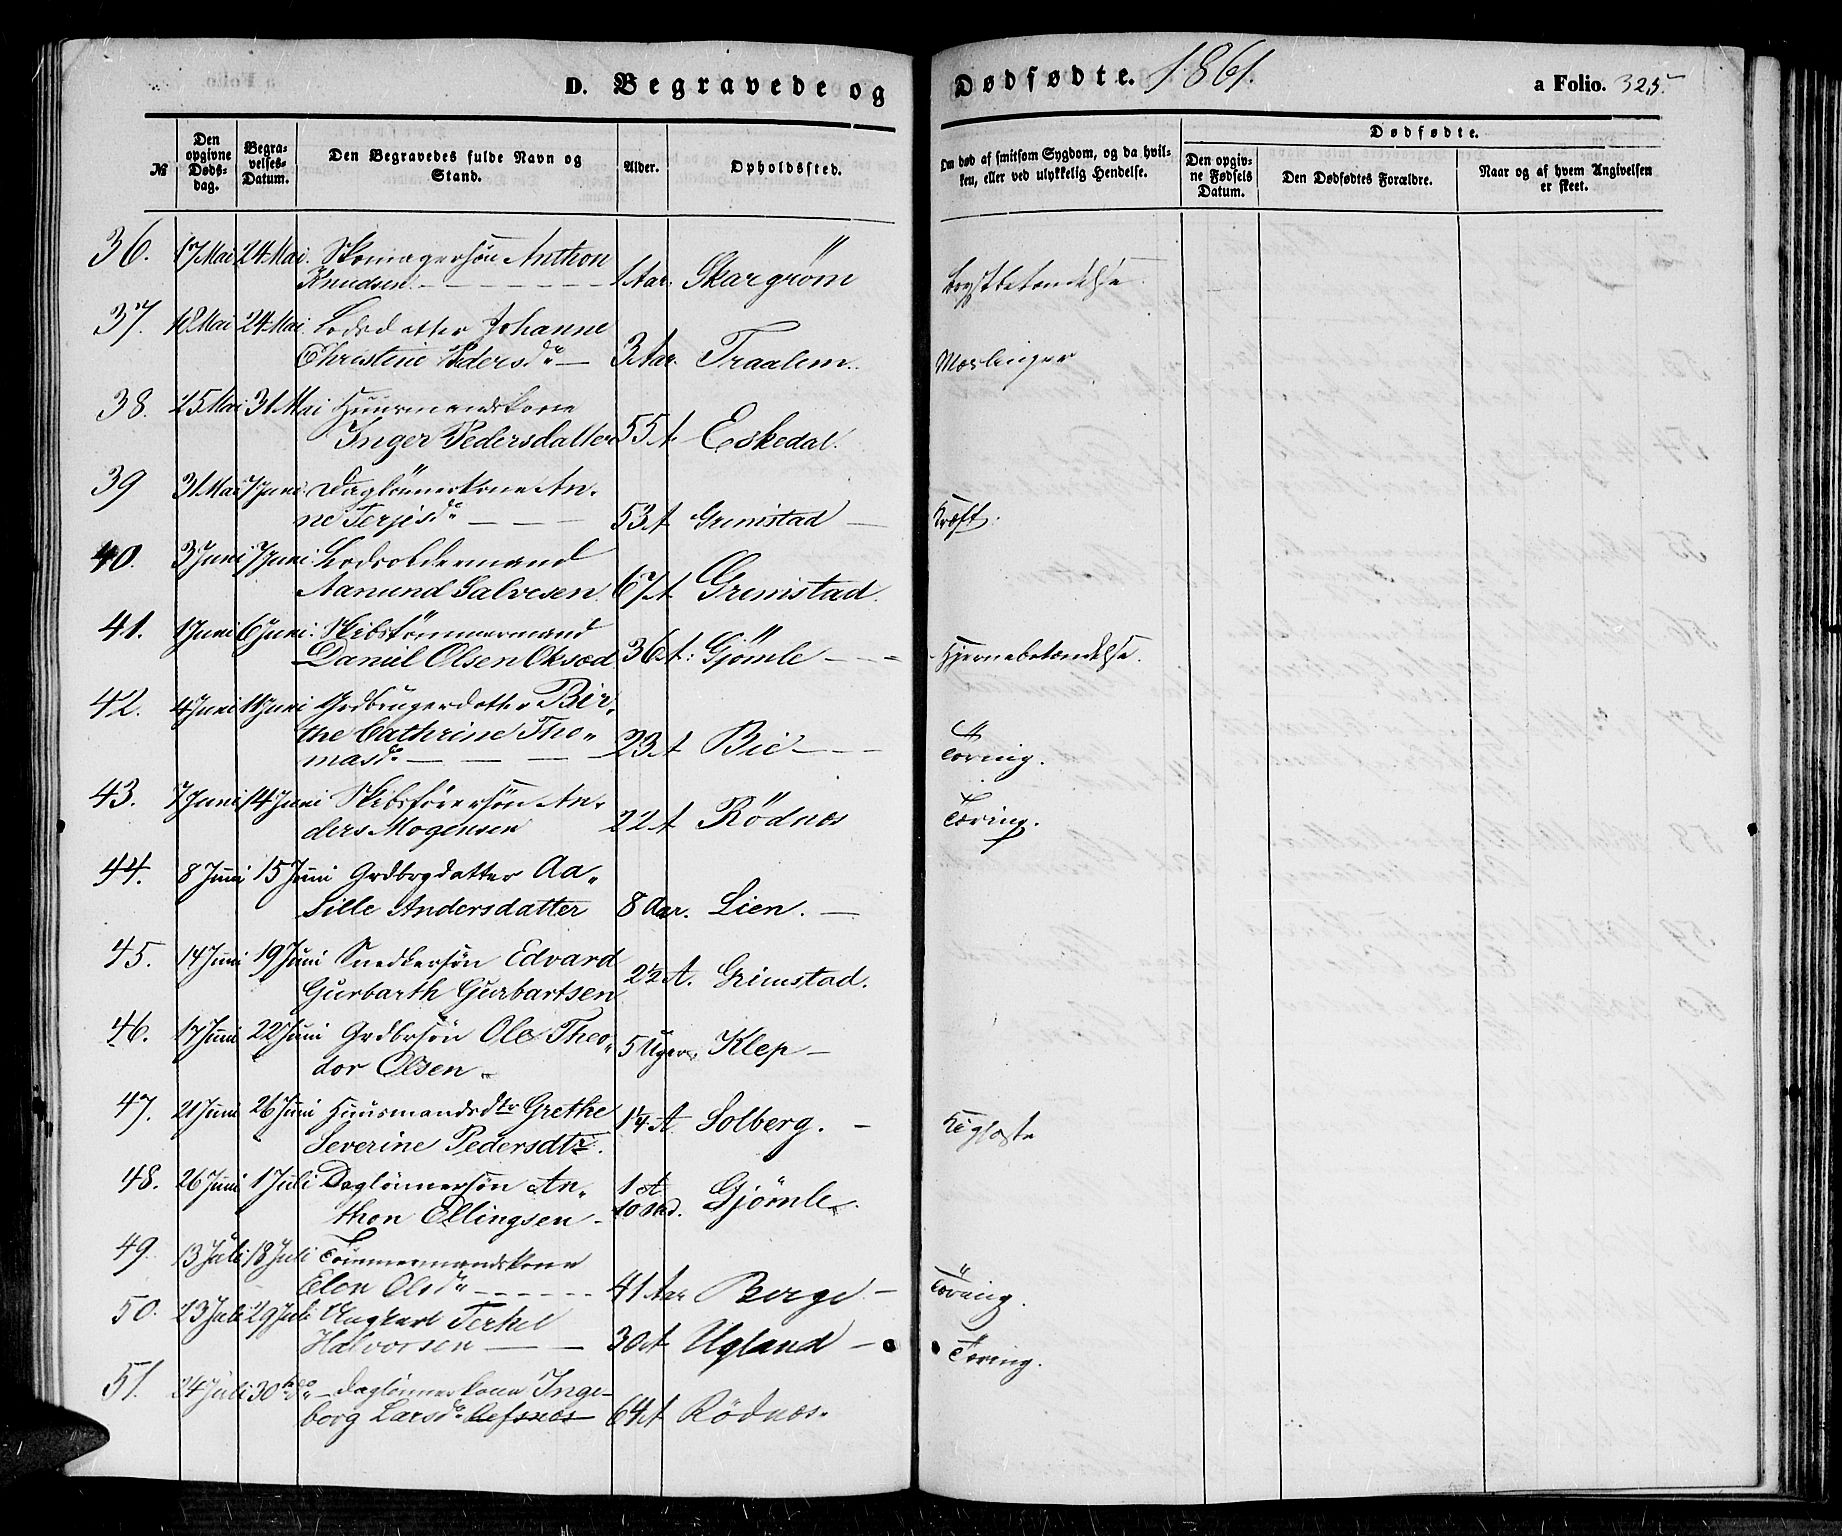 D. Begravede og Dødfødte. 1861. a Folio. 325
№ Den opgivne Dødsdag. Begravelses-Datum. Den Begravedes fulde Navn og Stand. Alder. Opholdssted. Om død af smitsom Sygdom, og da hvilken, eller ved ulykkelig Hendelse. Dødfødte.
Den opgivne Fødsels Datum. Den Dødfødtes Forældre. Naar og af hvem Angivelsen er skeet.
36. 17 Mai 24 Mai. Skomagersøn Anthon
Knudsen 1 Aar. Skargrøm Brystbetændelse
37. 18 Mai 24 Mai Lodsdatter Johanne
Christine Pedersdr 3 Aar. Traalem. Mæslinger
38. 25 Mai 31 Mai Huusmandskone
Inger Pedersdatter 55 A Eskedal.
39 31 Mai 7 Juni Daglönnerkone An-
ne Terjesdr 53 A Grimstad Kræft.
40. 3 Juni 7 Juni Lodsoldermand
Aanund Salvesen 67 A Grimstad.
41. 1 Juni 6 Juni. Skibstömmermand
Daniel Olsen Oksed 36 A. Gjömle Hjernebetændelse.
42. 4 Juni 11 Juni Grdbrugerdatter Bir-
the Cathrine Tho-
masdr 23 A Bie Tæring.
43. 7 Juni 14 Juni Skibsförersön An-
ders Mogensen 22 A Rödnes Tæring.
44. 8 Juni 15 Juni Grdbrgdatter Aa-
sille Andersdatter 8 Aar. Lien.
45. 14 Juni 19 Juni Snedkersön Edvard
Gurbarth Gurbartsen 2½ A. Grimstad.
46. 17 Juni 22 Juni Grdbrsön Ole Theo-
dor Olsen 5 Uger Klep
47. 21 Juni 26 Juni Huusmandsdtr Grethe
Severine Pedersdtr. 1¼ A Solberg. Kighoste
48. 26 Juni 1 Juli Daglönnersön An-
thon Ellingsen 1 A 10 Md. Gjömle.
49. 13 Juli 18 Juli Tömmermandskone
Elen Olsdr 41 Aar Berge Tæring.
50. 23 Juli 29 Juli Ungkarl Terkel
Halvorsen 30 A Ugland Tæring.
51. 24 Juli 30 Daglönnerkone Inge-
borg Larsdr 64 A Rödnes.